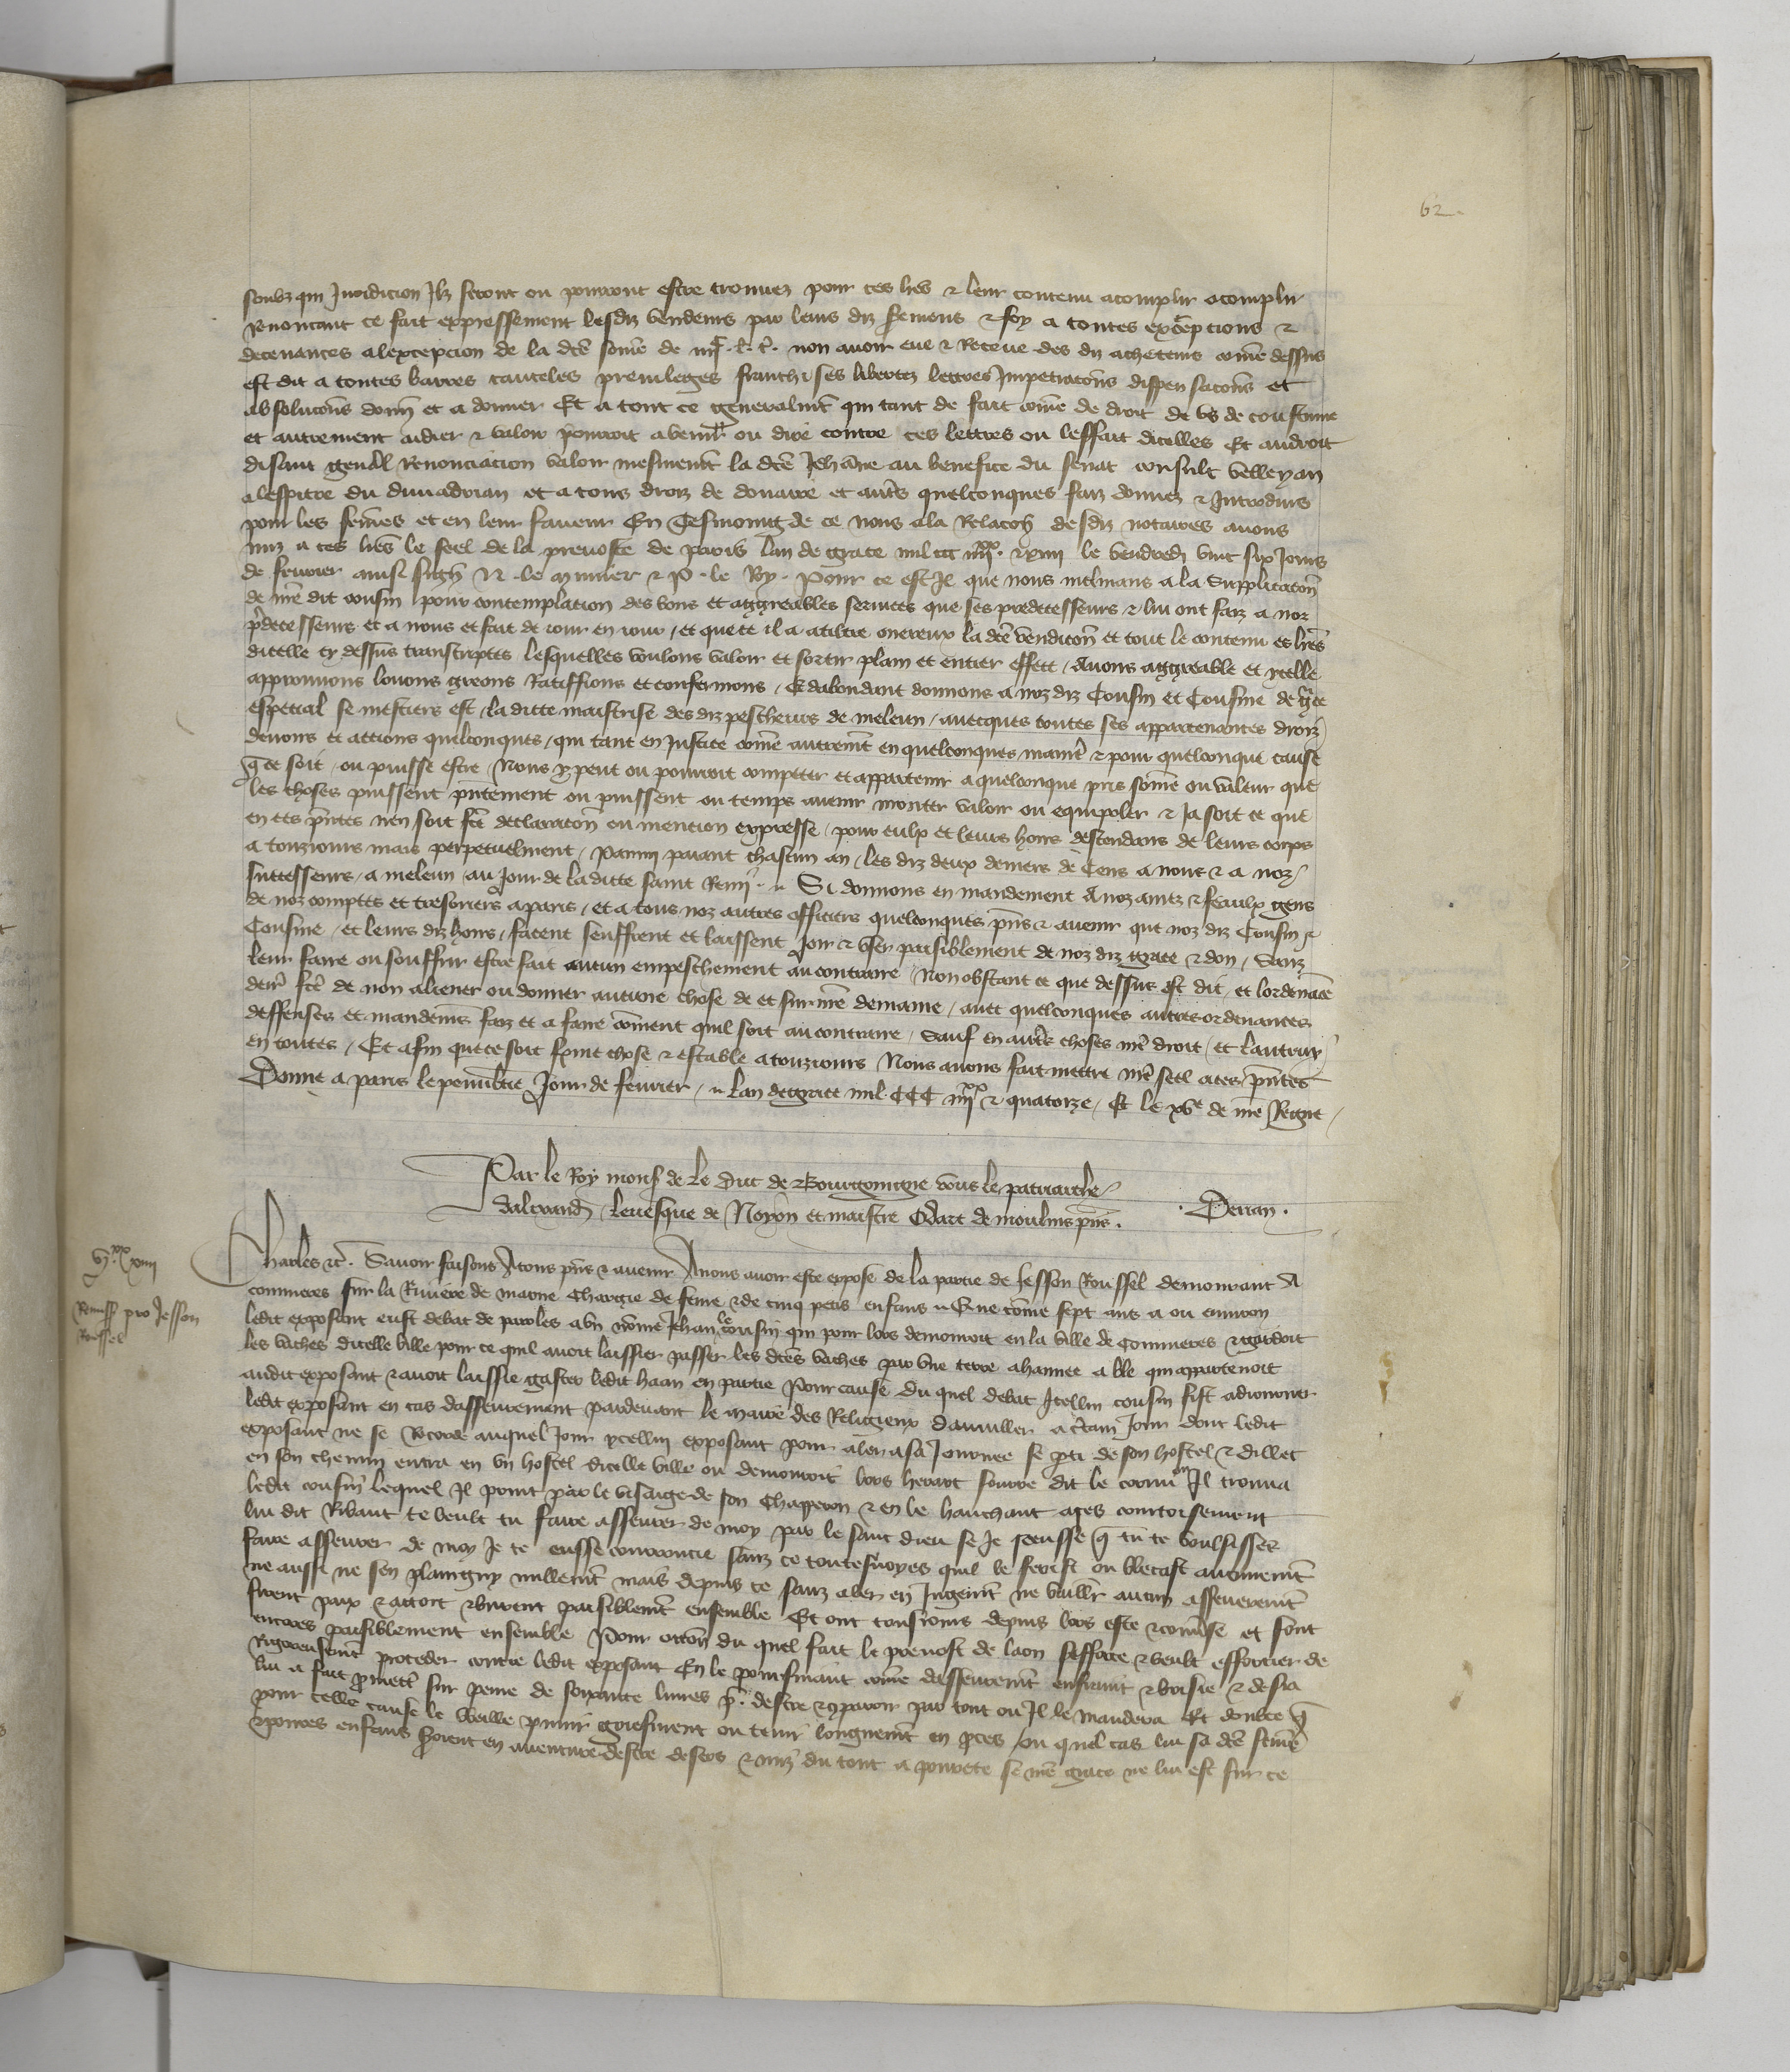 62
soubz qui Juridicion Ilz seront ou pourront estre trouvez pour ces lres & leur contenu acomplir acomplir
Renoncant ce fait expressement lesdiz vendeurs par leurs diz sermens & foy a toutes excepcions &
decevances alexcepcion de la dce some de non avoir eue & Receue des diz acheteurs come dessus
est dit a toutes barres cauteles previleges franchises libertez lettres Impetracons dispensacons et
absolucons donn et a donner Et a tout ce generalmt qui tant de fait come de droit de us de coustume
et autrement aidier & valoir pourroit a venir ou dire contre ces lettres ou leffait dicelles Et au droit
disant genal Renonciacion valoir mesmemt la dce Jehane au benefice du senat consult velleyan
alespitre du divi adrian et a tous droiz de douaire et autres quelconques faiz donnez & Introduis
pour les femes et en leur faveur En Tesmoing de ce nous ala Relacon desdiz notaires avons
mis a ces lres le seel de la prevoste de paris lan de grace mil ccc iiiixx & xiiii le vendredi vint six Jours
de fevrier ainsi sign N. le munier & P. le Roy. Pour ce est Il que nous inclinans a la Supplicacon
de nre dit cousin pour contemplation des bons et aggreables services que ses predecesseurs & lui ont faiz a noz
predecesseurs et a nous et fait de jour en jour, et que ce il a a tiltre onereux la dce vendicon et tout le contenu es lres
dicelle cy dessus transcriptes lesquelles voulons valoir et sortir plain et entier effect, Avons aggreable et ycelle
approuvons louons greons Ratiffions et confermons, Et dabondant donnons a noz diz Cousin et Cousine de grace
especial se mestiers est, la ditte maistrise des diz pescheurs de meleun, avecques toutes ses appartenances droiz
devoirs et actions quelconques, qui tant en Justice come autremt en quelconques manie & pour quelconque cause
q ce soit, ou puisse estre, Nous y peut ou pourroit competter et appartenir a quelconque pris some ou valeur que
les choses puissent pntement ou puissent ou temps avenir monter valoir ou equipoler & Ja soit ce que
en ces pntes nen soit fte declaracon ou mention expresse, pour eulx et leurs hoirs descendans de leurs corps
a touziours mais perpetuelment, Parmi paiant chascun an, les diz deux deniers de Cens a nous & a noz
successeurs, a meleun, au Jour de laditte saint Remi. Si donnons en mandement A noz amez & feaulx gens
de noz comptes et tresoriers a paris, et a tous noz autres officiers quelconques pns & avenir que noz diz Cousin &
Cousine, et leurs diz hoirs, facent seuffrent et laissent Joir & user paisiblement de noz diz grace & don, Sanz
leur faire ou souffrir estre fait aucun empeschement au contraire, Non obstant ce que dessus est dit, et lordenace
derr fte de non aliener ou donner aucune chose de et sur nre demaine, avec quelconques autres ordenances
deffenses et mandemens faiz et a faire coment quil soit au contraire, Sauf en autres choses nre droit, et lautruy
en toutes, Et afin que ce soit ferme chose & estable a touziours Nous avons fait mettre nre seel a ces pntes
Donne a paris le penultie Jour de fevrier, lan de grace mil CCC iiiixx & quatorze, Et le xve de nre Regne

Par le Roy mons de le Duc de Bourgoingne vous le patriarche
dalixand, levesque de Noyon et maistre Odart de moulins pns. . Derian .

vixx xiiii
Remiss pro Jesson
Roussel

Charles &c. Savoir faisons A tous pns & avenir A nous avoir este expose de la partie de Jesson Roussel demourant A
commeres sur la Riviere de marne Chargie de feme & de cinq petis enfans Que come sept ans a ou environ
ledit exposant eust debat de paroles a un nome Jehan le cousin qui pour lors demouroit en la ville de Commeres & gardoit
les vaches dicelle ville pour ce quil avoit laissier passer les dces vaches par une terre ahannee a ble qui appartenoit
audit exposant & avoit laissie gaster ledit haan en partie Pour cause du quel debat Icellui cousin fist adiourner
ledit exposant en cas dasseurement pardevant le maire des Religieux dauviller a ctain Jour dont ledit
exposant ne se Recorde auquel Jour ycellui exposant pour aler a sa Journee se pti de son hostel & dillec
en son chemin entra en un hostel dicelle ville ou demouroit lors herart dit le cornu ou Il trouva
ledit cousin lequel Il point par le visaige de son Chapperon & en le hauchant ases courtoisement
lui dit Ribaut te veult tu faire asseurer de moy par le sanc dieu se Je sceusse q tu te voulsisses
faire asseurer de moy Je te eusse couroucie sanz ce toutesvoyes quil le ferist ou blecast aucunemt
ne aussi ne sen plaingny nullemt mais depuis ce sanz aler en Jugemt ne baillr aucun asseuremt
firent paix & accort & burent paisiblemt ensemble Et ont tousiours depuis lors este & converse et sont
encores paisiblement ensemble Pour occon du quel fait le prevost de laon sefforce & veult efforcier de
Rigoreusemt proceder contre ledit exposant En le poursuiant come dasseuremt enfraint & brisie & desia
lui a fait promett sur peine de soixante livres p. destre & comparoir par tout ou Il le mandera Et doubte q
pour celle cause le vueille punir griefment ou tenir longuemt en pces ou quel cas lui sa dce feme
& povres enfans seroient en aventure destre desers & mis du tout a povrete se nre grace ne lui est sur ce